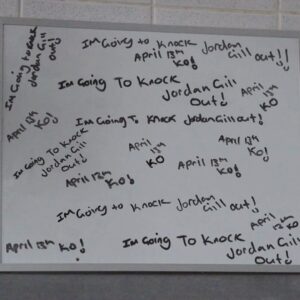 Im Going to Knock
Jordan Gill
Out!
April 13th
KO!
Im Going to Knock Jordan
Gill out!!
April 13th
KO!
Im Going To Knock
Jordan Gill
Out!
Im Going To Knock Jordan Gill out!
April
13th
KO
April 13th
KO!
Im Going To Knock
Jordan Gill
Out!
April 13th
KO!
April 13th KO!
Im Going to Knock Jordan
Gill out!!
April 13th
KO!
April 13th KO!
Im Going To Knock
Jordan Gill
Out!